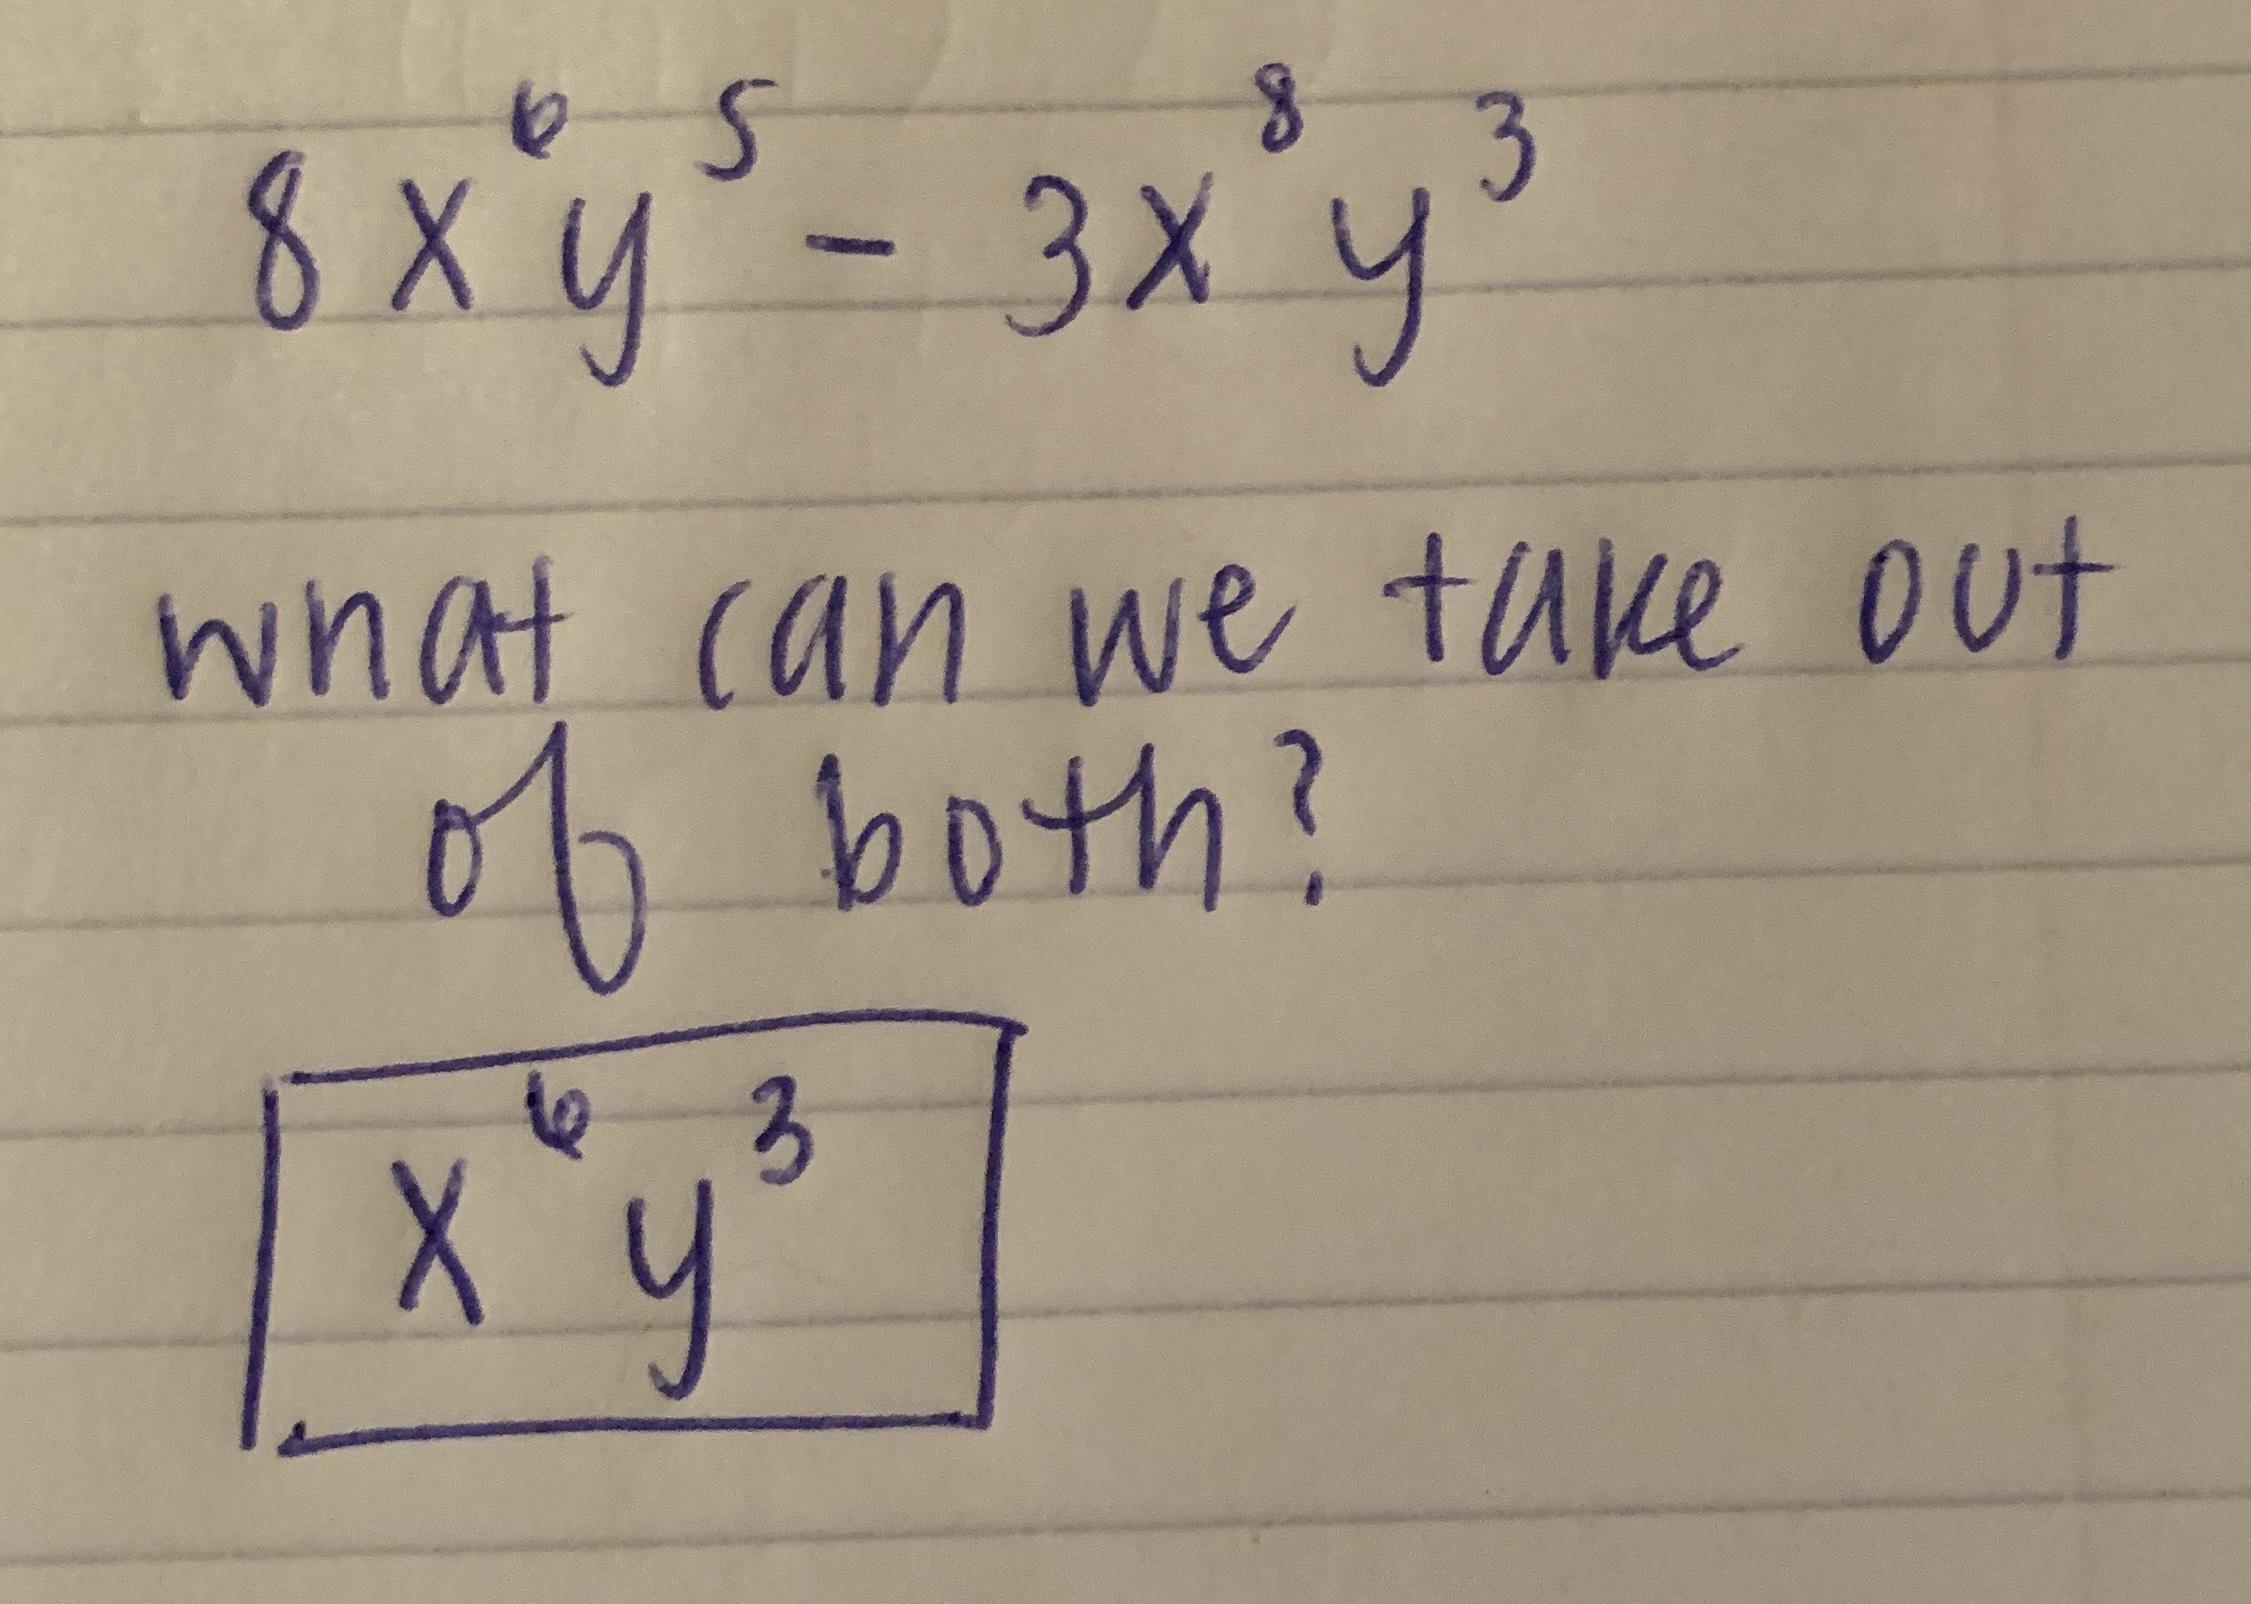 8x⁶y⁵ - 3x⁸y³
what can we take out
of both?
x⁶y³